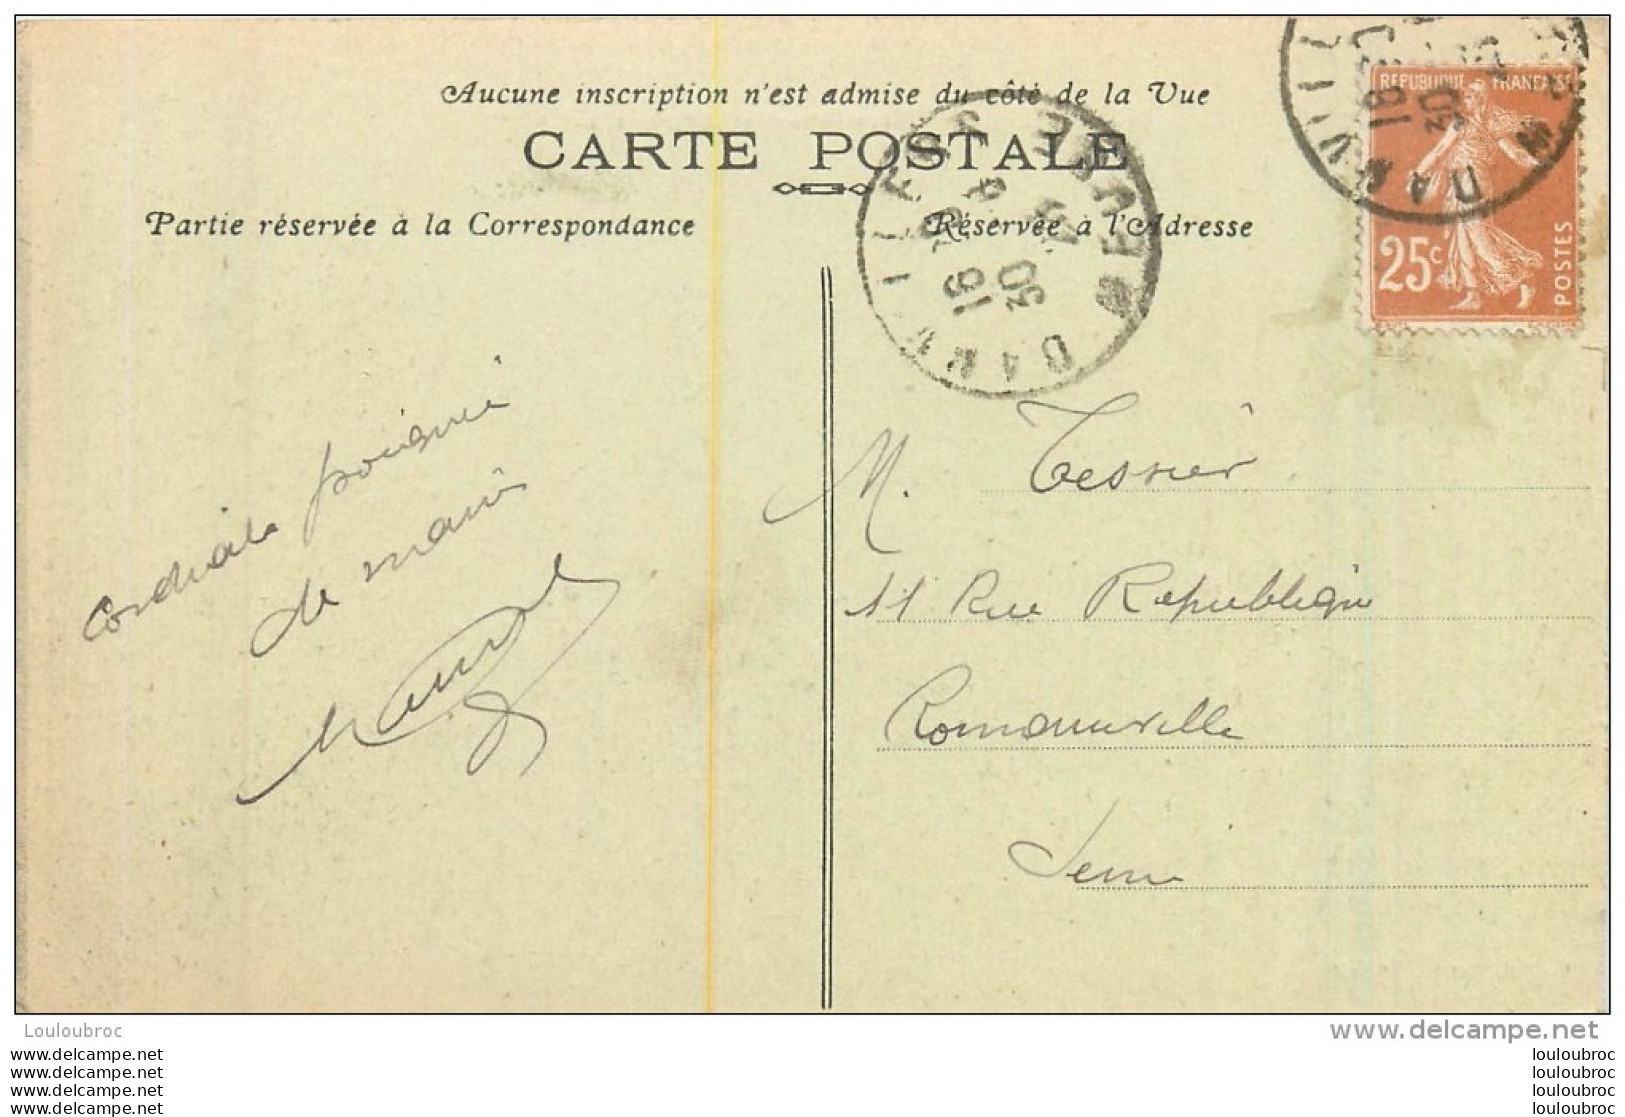 Aucune inscription n'est admise du côté de la Vue
CARTE POSTALE
Partie réservée à la Correspondance
Réservée à l'Adresse
REPUBLIQUE FRANCAISE
25c
POSTES
DARVILLE
16
30
MEUSE
DARVILLERS
16
30
Cordiale poignée
de main
M. Tessier
11 Rue République
Romainville
Seine
Louloubroc
www.delcampe.net
www.delcampe.net
www.delcampe.net
www.delcampe.net
www.delcampe.net
louloubroc
louloubroc
louloubroc
louloubroc